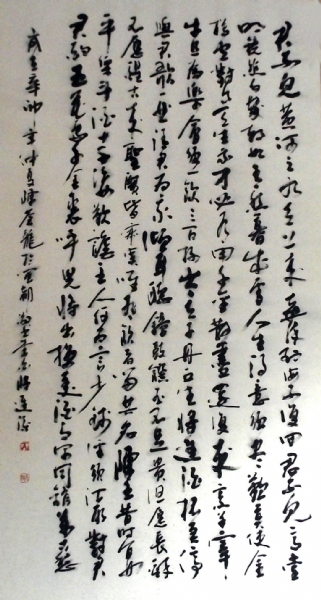 君不見黃河之水天上來奔流到海不復回君不見高堂
明鏡悲白髮朝如青絲暮成雪人生得意須盡歡莫使金
樽空對月天生我才必有用千金散盡還復來烹羊宰
牛且為樂會須一飲三百杯岑夫子丹丘生將進酒杯莫停
與君歌一曲請君為我傾耳聽鐘鼓饌玉不足貴但願長醉
不願醒古來聖賢皆寂寞唯有飲者留其名陳王昔時宴
平樂斗酒十千恣歡謔主人何為言少錢徑須沽取對君
酌五花馬千金裘呼兒將出換美酒與爾同銷萬古愁
將進酒